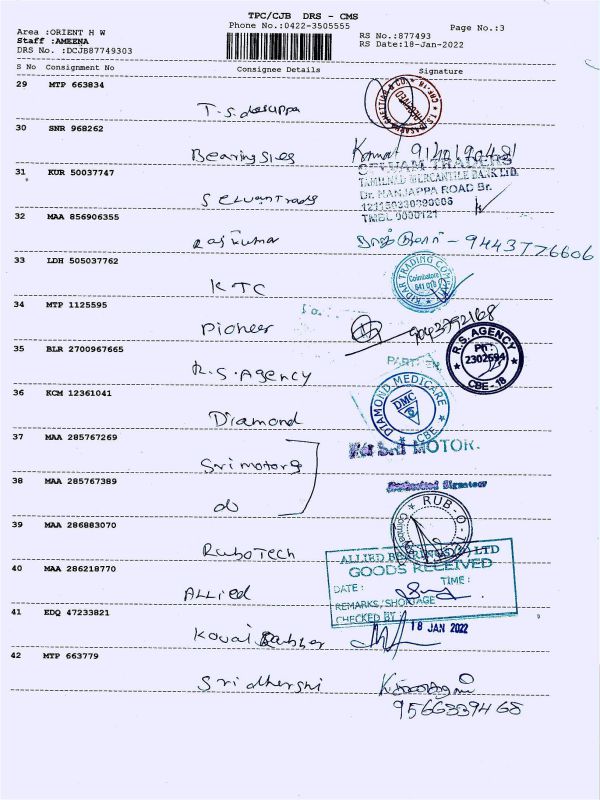 TPC/CJB DRS - CMS
Phone No.:0422-3505555
Page No.:3
Area :ORIENT H W
Staff :AMEENA
DRS No. :DCJB87749303
RS No.:877493
RS Date:18-Jan-2022
S No Consignment No Consignee Details Signature
29 MTP 663834
T.S.
30 SNR 968262
Bearing Sles
31 KUR 50037747
SELVAM TRADERS
TAMILNAD MERCANTILE BANK LTD.
Dr. NANJAPPA ROAD Br.
TMBL 0000121
Selvan Trads
32 MAA 856906355
Rajkumar
9443776606
33 LDH 505037762
KTC
KIDAR TRADING COMPANY
Coimbatore
641 018
34 MTP 1125595
Pioneer
9043792168
35 BLR 2700967665
R.S. Agency
R.S. AGENCY
PH:
2302594
CBE-18
36 KCM 12361041
Diamond
DIAMOND MEDICARE
DMC
CBE
37 MAA 285767269
Sri motors
Sri MOTOR.
38 MAA 285767389
do
39 MAA 286883070
RuboTech
RUB-O-T
40 MAA 286218770
Allied
ALLIED BEARINGS (P) LTD
GOODS RECEIVED
DATE : TIME :
REMARKS / SHORTAGE
CHECKED BY
18 JAN 2022
41 EDQ 47233821
Kovai Rabber
42 MTP 663779
Sridhershi
9566339468